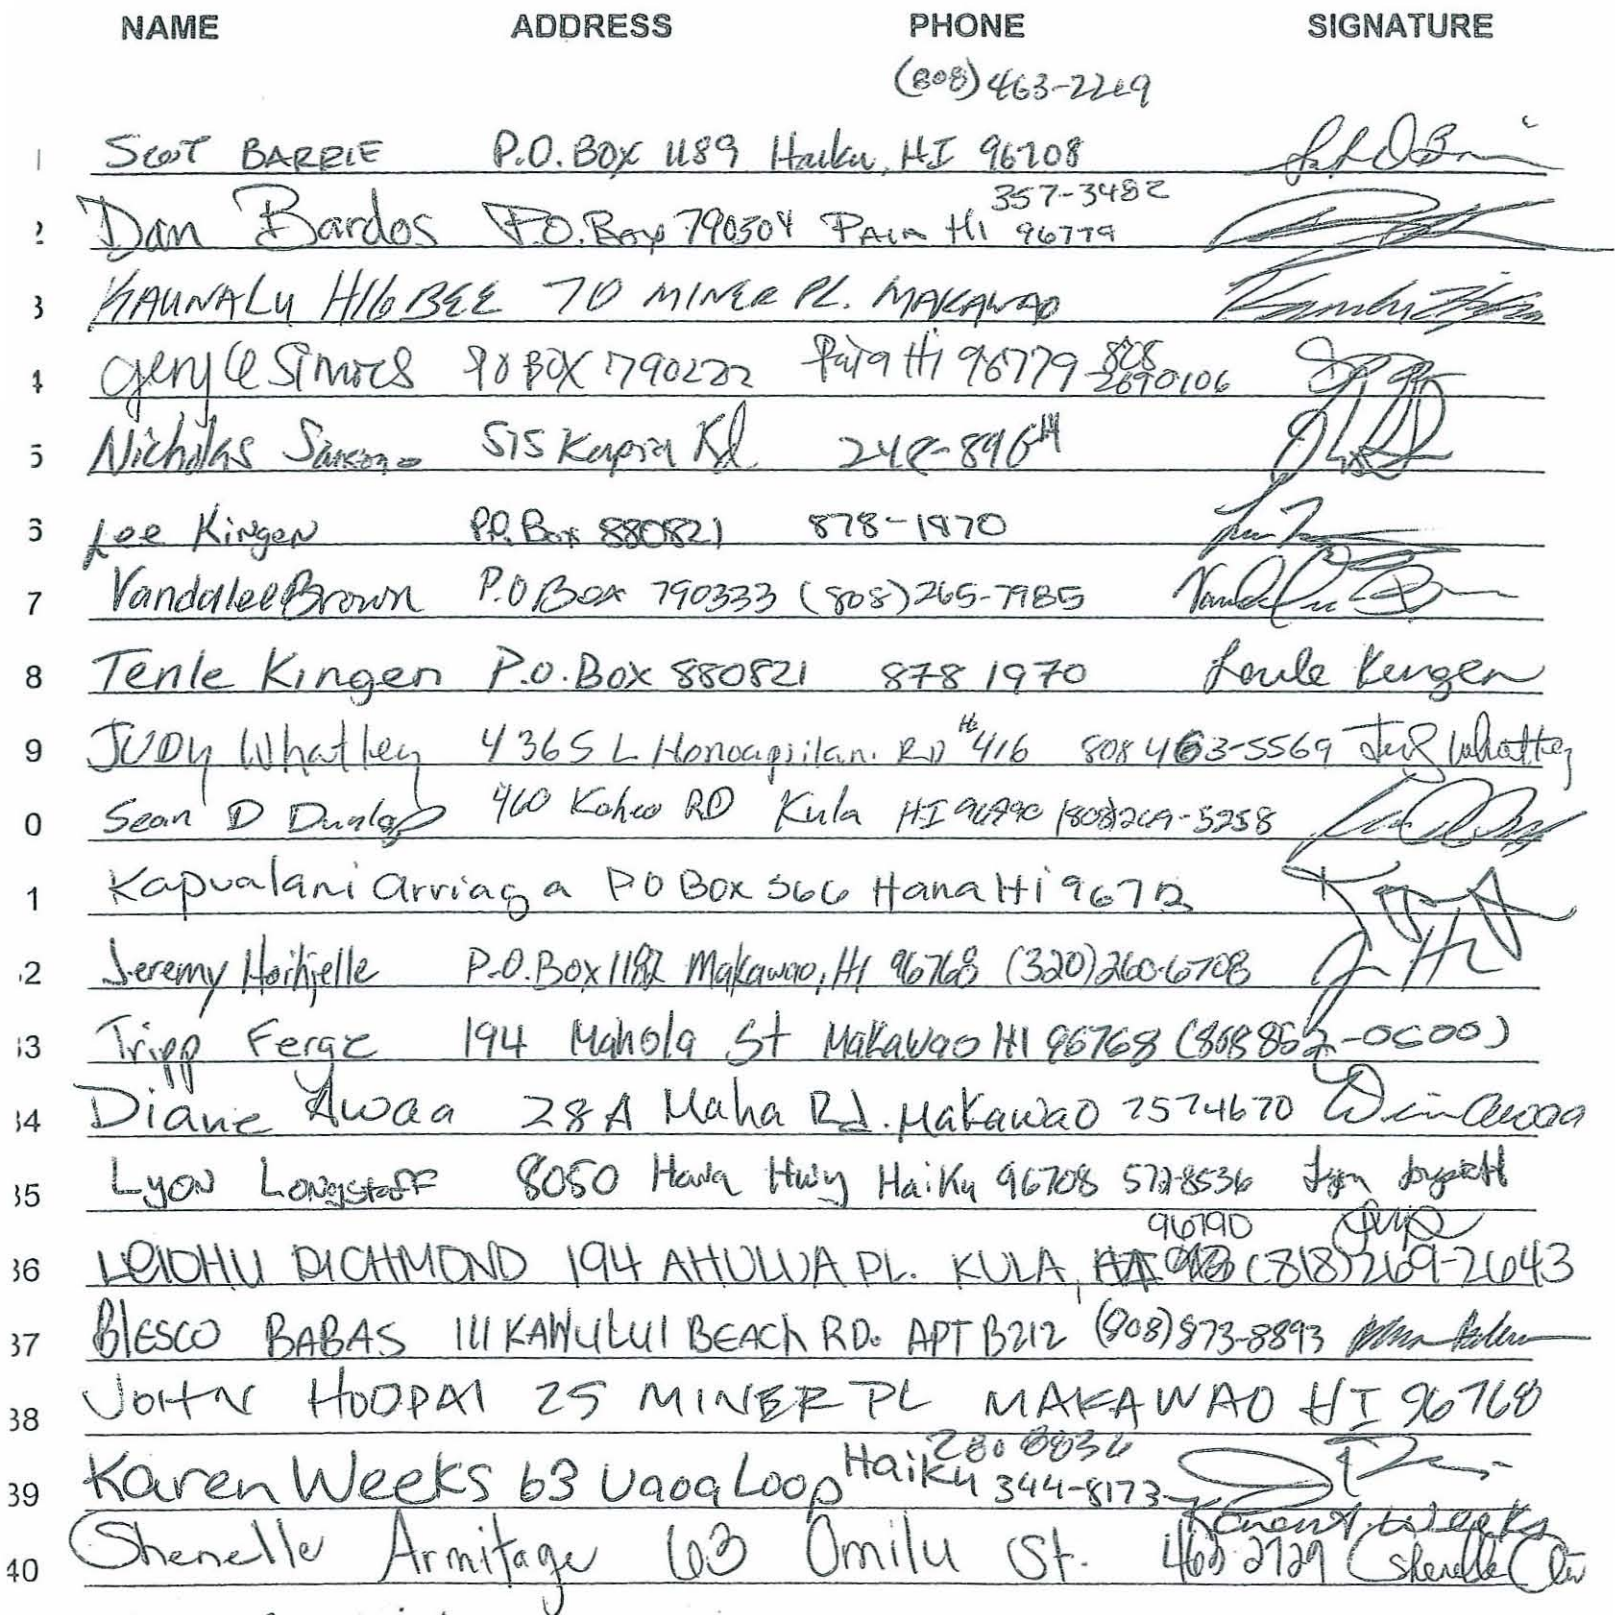 NAME ADDRESS PHONE SIGNATURE
(808) 463-2269
1 Scot BARRIE P.O. BOX 1189 Haiku, HI 96708
357-3482
2 Dan Bardos P.O. Box 790304 PAIA HI 96779
3 KAUNALU HIGBEE 70 MINER PL. MAKAWAO
4 PO BOX 790222 Paia Hi 96779 808 2690106
5 Nicholas 515 Rd.
6 Lee Kingen P.O. Box 880821 878-1970
7 Vandalee Brown P.O Box 790333 (808) 265-7985
8 Tenle Kingen P.O. Box 880821 878 1970
9 JUDY Whatley 4365 L. Honoapiilani. RD #416 808 463-5569 Judy Whatley
0 Sean D Dunlap 460 RD Kula HI 96790 (808)269-5258
1 Kapualani Arriaga PO Box 566 Hana Hi 96713
12 Jeremy P.O. Box 1182 Makawao, HI 96768 (320)260-6708
33 Tripp 194 Mahola St Makawao HI 96768
34 Diane Awaa 28A Maha Rd. Makawao
35 Lyon Longstaff 8050 Hana Hwy Haiku 96708 572-8536
96790
36 RICHMOND 194 AHULUA PL. KULA, (818)269-2643
37 BLESCO BABAS 111 KAHULUI BEACH RD. APT B212 (808) 873-8893
38 JOHN HOOPAI 25 MINER PL MAKAWAO HI 96768
280 8836
39 Karen Weeks 63 Uaoa Loop Haiku 344-8173
Weeks
40 Shenelle Armitage 63 Omilu St. Shenelle